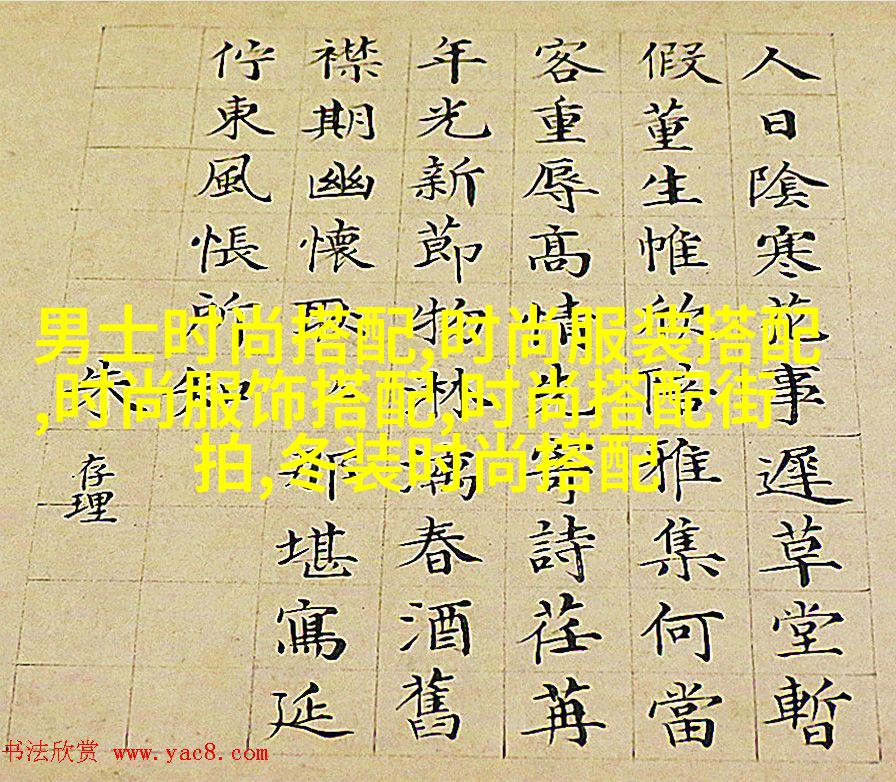 人日陰寒花事遲草堂暫
假董生帷欣陪雅集何當
客重辱高情先寄詩荏苒
年光新節物淋漓春酒舊
襟期幽懷那堪寫延
佇東風悵所知
朱存理
男士时尚搭配,时尚服装搭配
,时尚服饰搭配,时尚搭配街
拍,冬装时尚搭配
书法欣赏 www.yac8.com